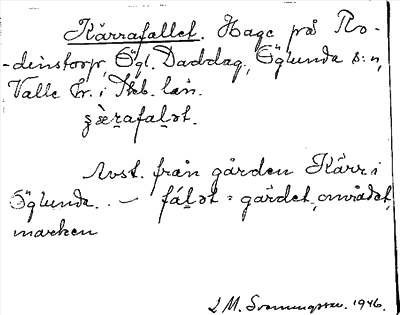 Kärrafallet. Hage på Ro-
-dinstorp, Ögl. Daddag., Öglunda s:n,
Valle hr. i Skb. län.
Avst. från gården Kärr i
Öglunda. – fáḷət = gärdet, området,
marken
L M. Svenungsson. 1946.